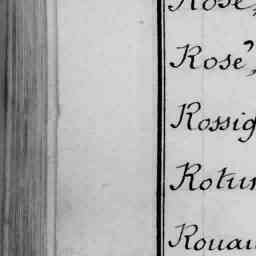 Rose,
Rosé,
Rossig
Rotun
Rouau